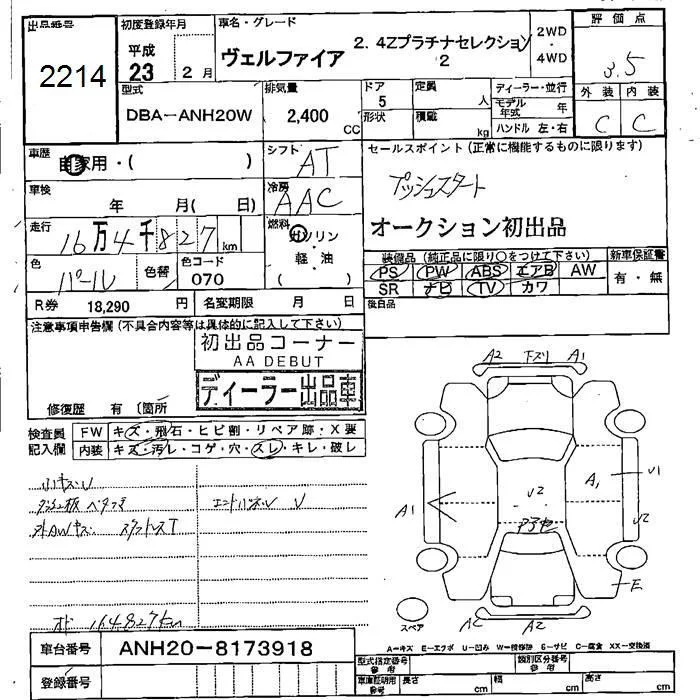 出品番号
2214
初度登録年月
平成
23 2 月
車名・グレード
ヴェルファイア
2.4Zプラチナセレクション
2
2WD
・
4WD
評価点
3.5
型式
DBA-ANH20W
排気量
2,400
CC
ドア
5
形状
定員
人
積載
kg
ディーラー・並行
モデル年式 年
ハンドル 左・右
外装 内装
C C
車歴
自家用・( )
シフト
AT
車検
年 月( 日)
冷房
AAC
走行
16万4千827km
燃料
ガソリン
・
軽・油
( )
色
パール
色替
色コード
070
R券 18,290 円
名変期限 月 日
セールスポイント(正常に機能するものに限ります)
プッシュスタート
オークション初出品
装備品(純正品に限り○をつけて下さい)
PS PW ABS エアB AW
SR ナビ TV カワ
新車保証書
有・無
後日品
注意事項申告欄(不具合内容等は具体的に記入して下さい)
初出品コーナー
AA DEBUT
ディーラー出品車
修復歴 有 〔箇所
検査員
記入欄
FW キズ・飛石・ヒビ割・リペア跡・X要
内装 キズ・汚レ・コゲ・穴・スレ・キレ・破レ
小キズU
外AWキズ
オド 164827km
A2 下スリ A1
A1
A1
U1
U2
U2
E
A2
スペア
A-キズ E-エクボ U-凹み W-補修跡 S-サビ C-腐食 XX-交換済
車台番号 ANH20-8173918
登録番号
型式指定番号
参考
類別区分番号
参考
車庫証明用
参考
長さ cm 幅 cm 高さ cm